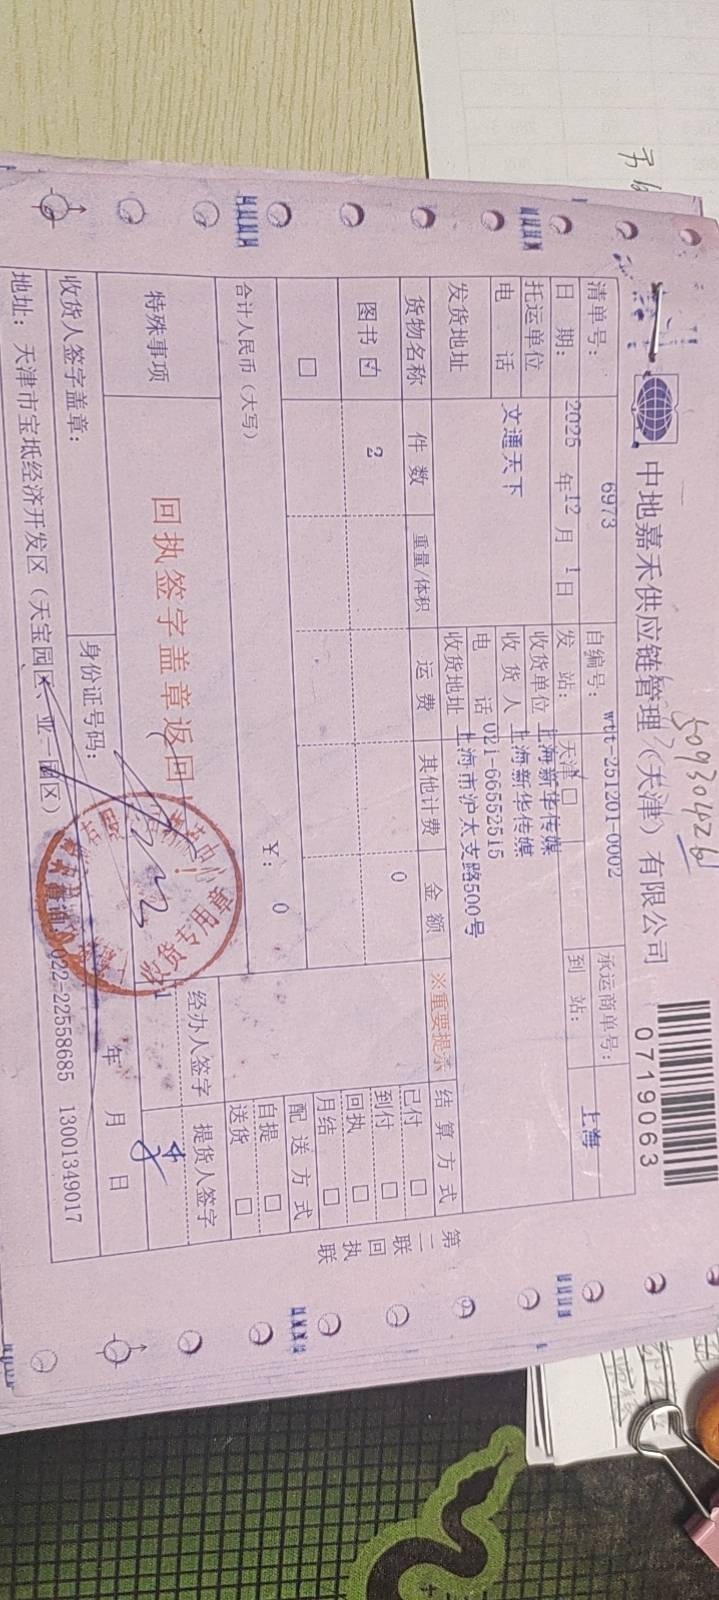 50930426
中地嘉禾供应链管理（天津）有限公司
0719063
清单号： 6973 自编号： wtt-251201-0002 承运商单号：
日 期： 2025 年 12 月 1 日 发 站： 天津 □ 到 站： 上海
托运单位 文通天下 收货单位 上海新华传媒
电 话 收 货 人 上海新华传媒
电 话 021-66552515
发货地址 收货地址 上海市沪太支路500号
货物名称 件 数 重量/体积 运 费 其他计费 金 额 ※重要提示 结 算 方 式
图书 ☑ 2 0
□
已付 □
到付 □
回执 □
月结 □
配 送 方 式
自提 □
送货 □
合计人民币（大写） ￥： 0
特殊事项 回执签字盖章返回！ 经办人签字 提货人签字
收货专用章
收货人签字盖章： 身份证号码： 年 月 日
地址：天津市宝坻经济开发区（天宝园区、亚一园区） 022-22558685 13001349017
第二联 回执联